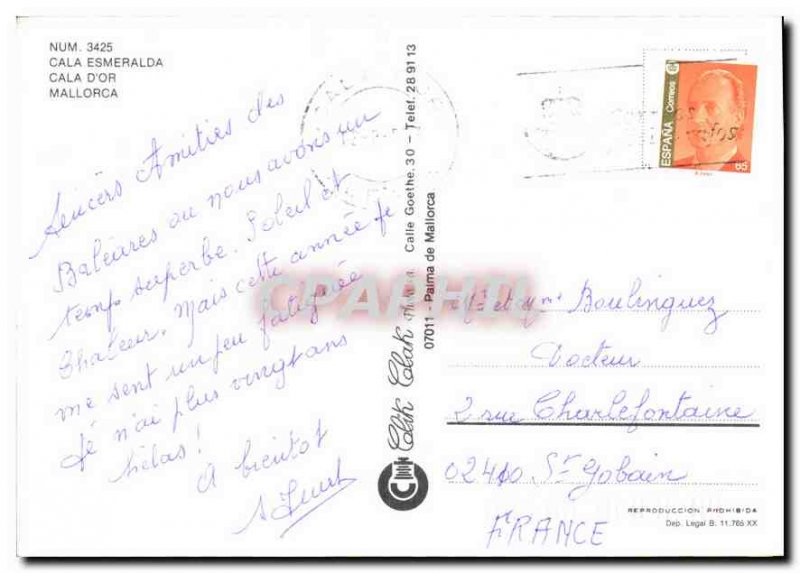 NUM. 3425
CALA ESMERALDA
CALA D'OR
MALLORCA
Sincèrs Amitiés des
Baléares ou nous avons un
temps superbe. Soleil et
Chaleur. Mais cette année je
me sent un peu fatiguée
Je n'ai plus vingt ans
hélas!
A bientot
Clik Clak
Calle Goethe, 30 - Telef. 28 91 13
07011 - Palma de Mallorca
ESPAÑA Correos
65
CPAPHIL
Boulinguez
Docteur
2 rue Charlefontaine
02410 St Gobain
FRANCE
REPRODUCCION PROHIBIDA
Dep. Legal B. 11.765 XX